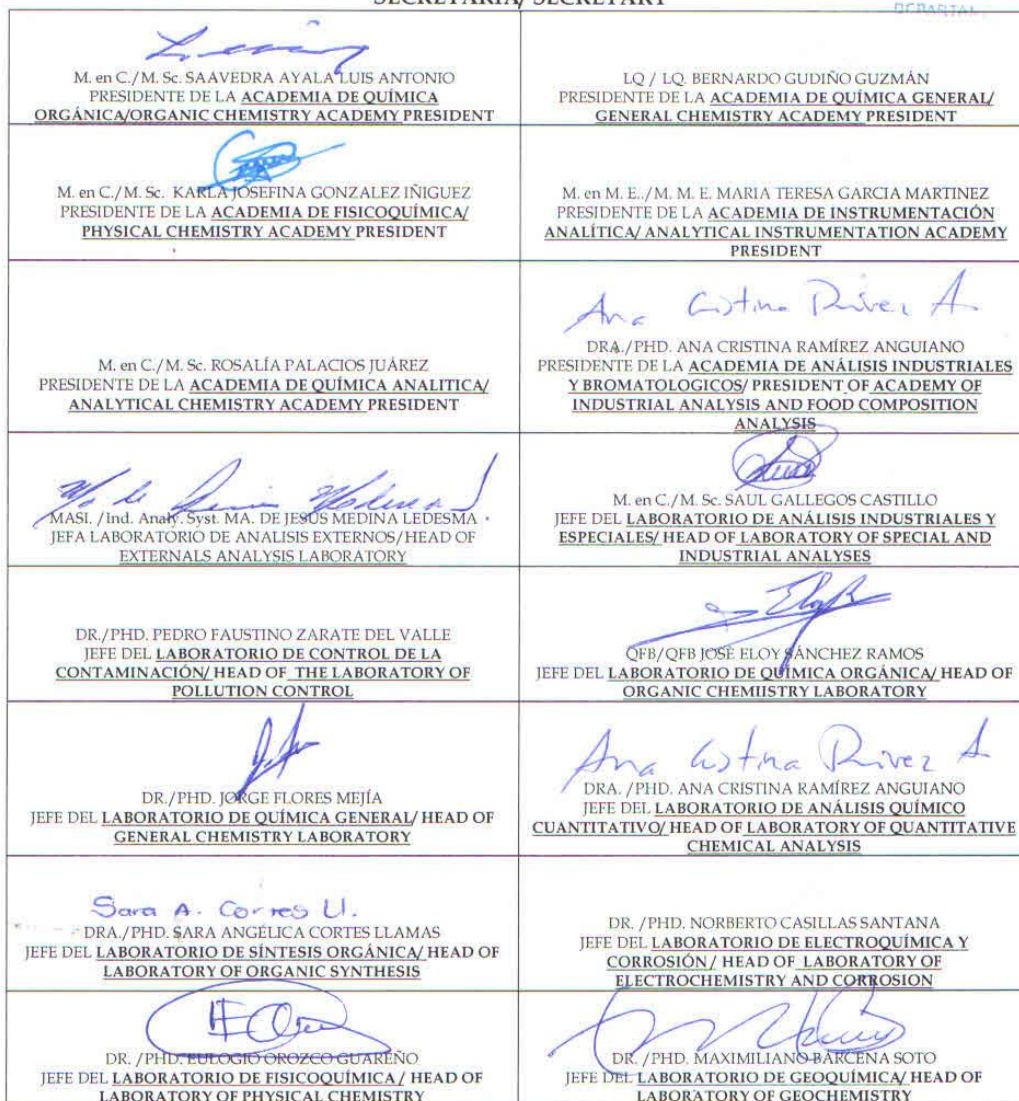 SECRETARIA/ SECRETARY
M. en C./M. Sc. SAAVEDRA AYALA LUIS ANTONIO
PRESIDENTE DE LA ACADEMIA DE QUÍMICA
ORGÁNICA/ORGANIC CHEMISTRY ACADEMY PRESIDENT
LQ / LQ. BERNARDO GUDIÑO GUZMÁN
PRESIDENTE DE LA ACADEMIA DE QUÍMICA GENERAL/
GENERAL CHEMISTRY ACADEMY PRESIDENT
M. en C./M. Sc. KARLA JOSEFINA GONZALEZ IÑIGUEZ
PRESIDENTE DE LA ACADEMIA DE FISICOQUÍMICA/
PHYSICAL CHEMISTRY ACADEMY PRESIDENT
M. en M. E../M. M. E. MARIA TERESA GARCIA MARTINEZ
PRESIDENTE DE LA ACADEMIA DE INSTRUMENTACIÓN
ANALÍTICA/ ANALYTICAL INSTRUMENTATION ACADEMY
PRESIDENT
M. en C./M. Sc. ROSALÍA PALACIOS JUÁREZ
PRESIDENTE DE LA ACADEMIA DE QUÍMICA ANALITICA/
ANALYTICAL CHEMISTRY ACADEMY PRESIDENT
Ana Cristina A.
DRA./PHD. ANA CRISTINA RAMÍREZ ANGUIANO
PRESIDENTE DE LA ACADEMIA DE ANÁLISIS INDUSTRIALES
Y BROMATOLOGICOS/ PRESIDENT OF ACADEMY OF
INDUSTRIAL ANALYSIS AND FOOD COMPOSITION
ANALYSIS
MASI. /Ind. Analy. Syst. MA. DE JESÚS MEDINA LEDESMA
JEFA LABORATORIO DE ANALISIS EXTERNOS/HEAD OF
EXTERNALS ANALYSIS LABORATORY
M. en C./M. Sc. SAUL GALLEGOS CASTILLO
JEFE DEL LABORATORIO DE ANÁLISIS INDUSTRIALES Y
ESPECIALES/ HEAD OF LABORATORY OF SPECIAL AND
INDUSTRIAL ANALYSES
DR./PHD. PEDRO FAUSTINO ZARATE DEL VALLE
JEFE DEL LABORATORIO DE CONTROL DE LA
CONTAMINACIÓN/ HEAD OF THE LABORATORY OF
POLLUTION CONTROL
QFB/QFB JOSÉ ELOY SÁNCHEZ RAMOS
JEFE DEL LABORATORIO DE QUÍMICA ORGÁNICA/ HEAD OF
ORGANIC CHEMIISTRY LABORATORY
DR./PHD. JORGE FLORES MEJÍA
JEFE DEL LABORATORIO DE QUÍMICA GENERAL/ HEAD OF
GENERAL CHEMISTRY LABORATORY
Ana Cristina A
DRA. /PHD. ANA CRISTINA RAMÍREZ ANGUIANO
JEFE DEL LABORATORIO DE ANÁLISIS QUÍMICO
CUANTITATIVO/ HEAD OF LABORATORY OF QUANTITATIVE
CHEMICAL ANALYSIS
Sara A. Cortes Ll.
DRA./PHD. SARA ANGÉLICA CORTES LLAMAS
JEFE DEL LABORATORIO DE SÍNTESIS ORGÁNICA/ HEAD OF
LABORATORY OF ORGANIC SYNTHESIS
DR. /PHD. NORBERTO CASILLAS SANTANA
JEFE DEL LABORATORIO DE ELECTROQUÍMICA Y
CORROSIÓN/ HEAD OF LABORATORY OF
ELECTROCHEMISTRY AND CORROSION
DR. /PHD. EULOGIO OROZCO GUAREÑO
JEFE DEL LABORATORIO DE FISICOQUÍMICA / HEAD OF
LABORATORY OF PHYSICAL CHEMISTRY
DR. /PHD. MAXIMILIANO BÁRCENA SOTO
JEFE DEL LABORATORIO DE GEOQUÍMICA/ HEAD OF
LABORATORY OF GEOCHEMISTRY